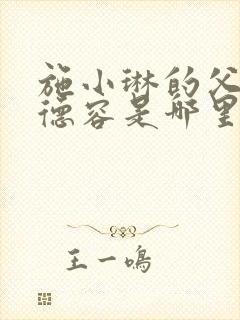 施小琳的父
德容是哪里
王一鸣